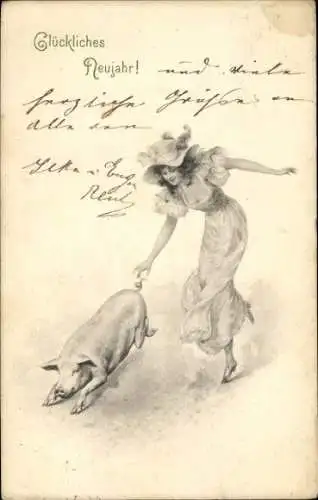 Glückliches
Neujahr! und viele
herzliche Grüße an
alle von
Ilka u.